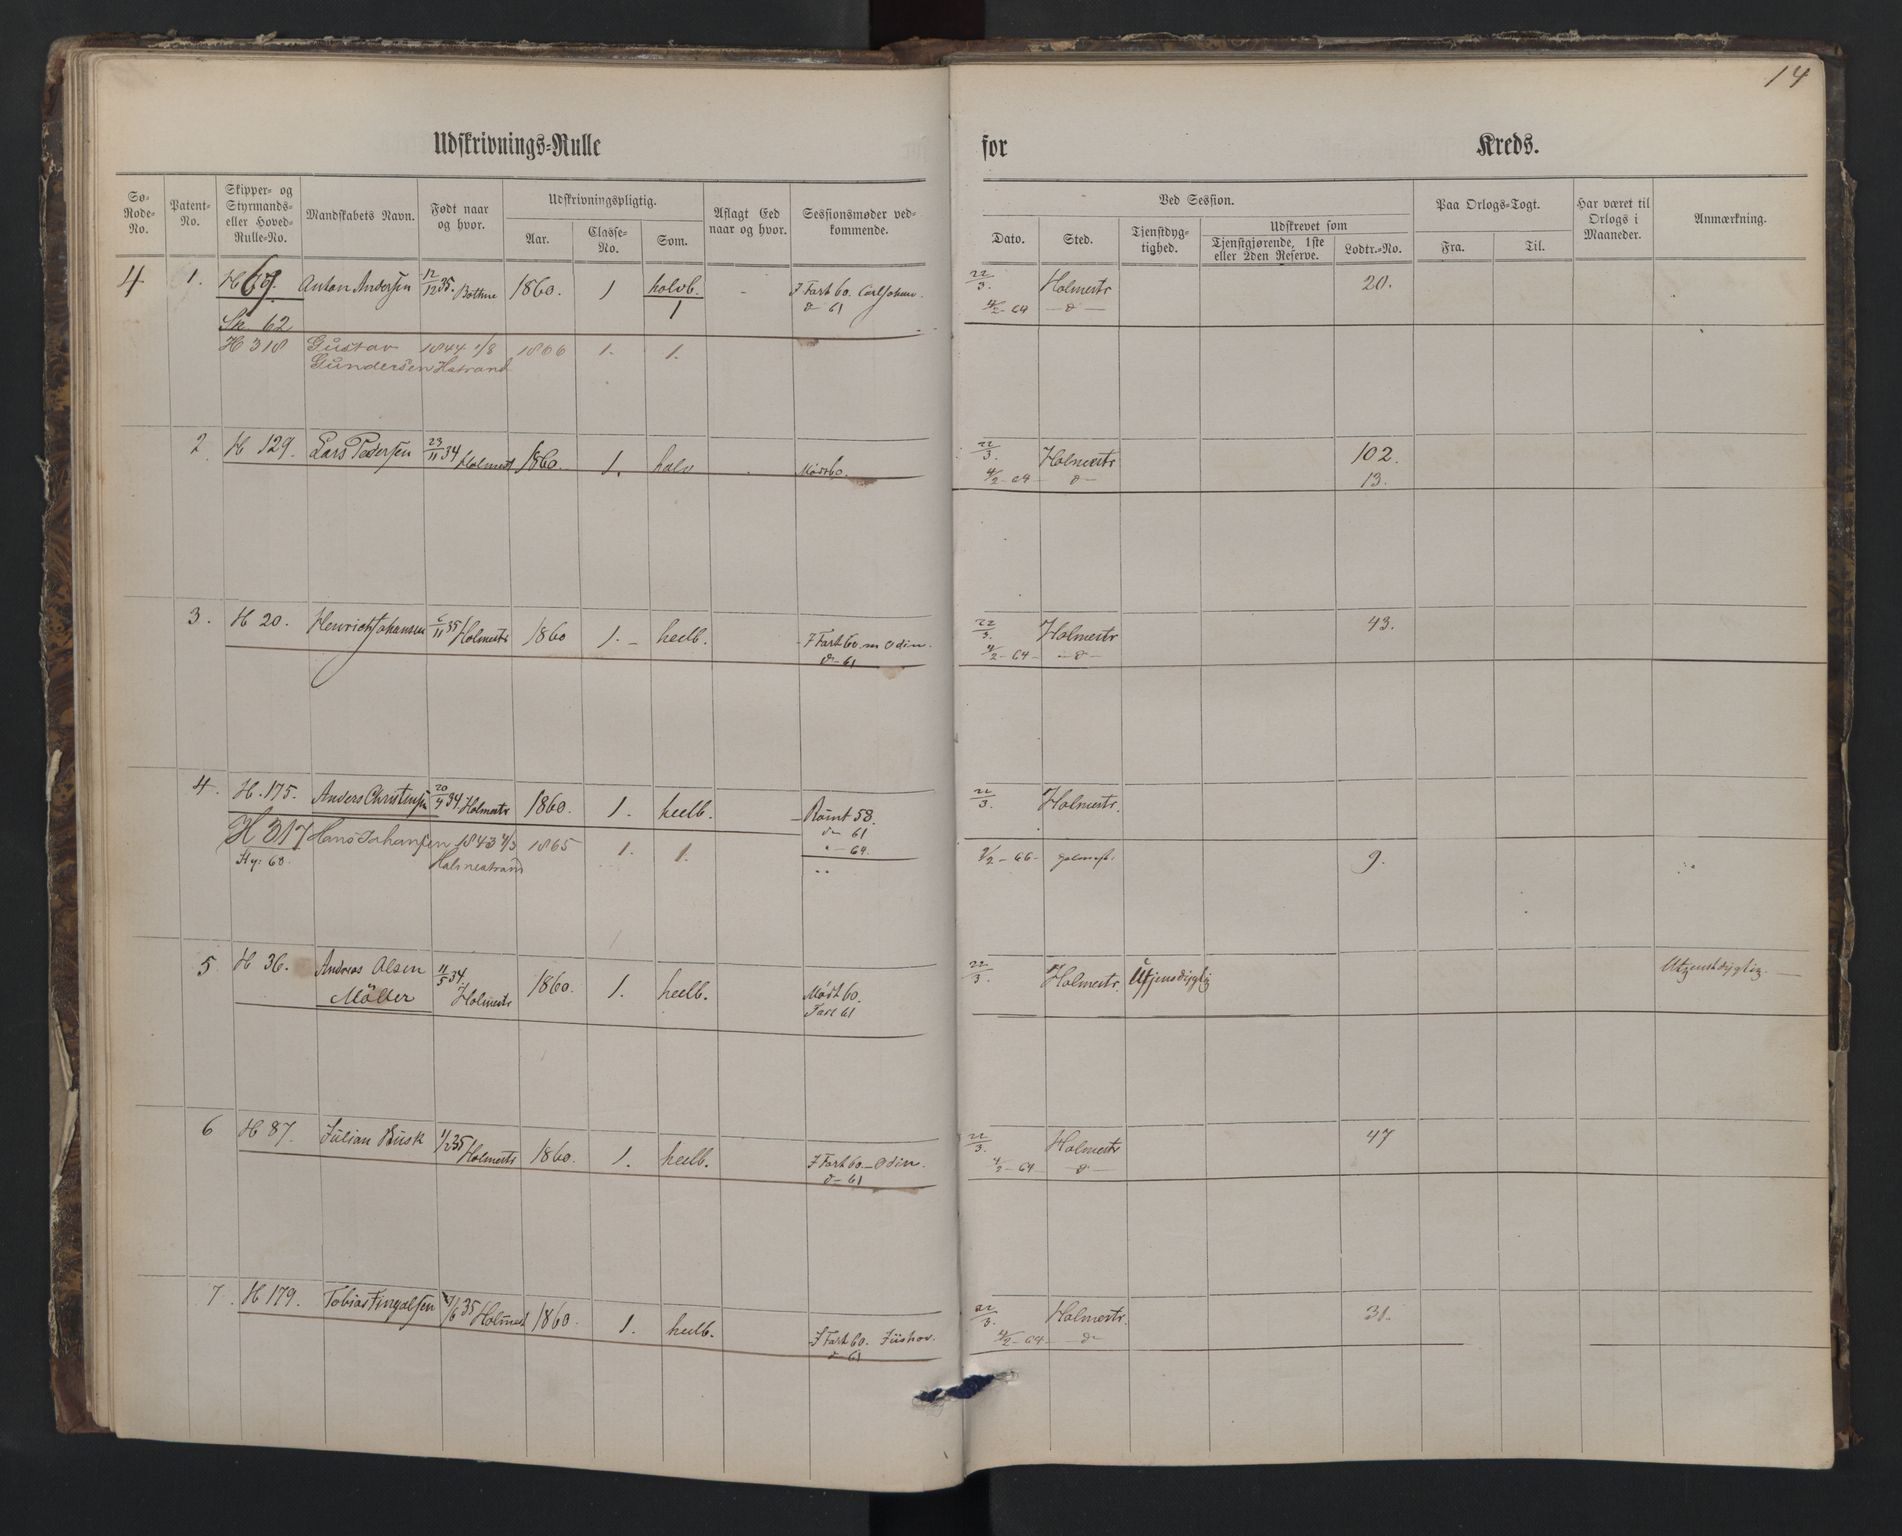 14
Udskrivnings-Rulle for Kreds.
Sø-Rode-No. Patent-No. Skipper- og Styrmands- eller Hoved-Rulle-No. Mandskabets Navn. Født naar og hvor. Udskrivningspligtig. Aar. Classe-No. Som. Aflagt Eed naar og hvor. Sessionsmøder vedkommende.
Ved Session. Dato. Sted. Tjenstdygtighed. Udskrevet som Tjenstgjørende, 1ste eller 2den Reserve. Lodtr.-No. Paa Orlogs-Togt. Fra. Til. Har været til Orlogs i Maaneder. Anmærkning.
4 1. H 67. Anton Andersen 12/12 35. Bottne 1860. 1 halvb. - I Fart 60. Carl Johan. 22/3. Holmestr 20.
Sk. 62 1 d– 61 4/2-64 –d–
H 318 Gustav 1844 1/8 1866 1. 1.
Gundersen Hstrand
2 H 129. Lars Pedersen 23/11 34 Holmest 1860. 1. halv Mødt 60. 22/3. Holmestr 102.
4/2-64 –d– 13.
3. H 20. Henrich Johansen 6/11 35 Holmestr 1860 1. – heelb. I Fart 60. m Odin. 22/3. Holmestr 43.
d– 61 4/2-64- –d–
4. H. 175. Anders Christensen 20/9 34. Holmestr 1860. 1. heelb. Rømt 58. 22/3. Holmestr.
d– 61
H 317 Hans Johansen 1843 4/3 1865 1. 1. – 64. 2/2-66- 9.
68. Holmestrand
5 H 36. Andreas Olsen 11/5 34. Holmestr 1860. 1. heelb. Mødt 60. 22/3. Holmestr. Utjensdygtig Utjenstdygtig.
Møller Fart 61
6 H 87. Julian Busk 11/2 35 Holmestr 1860. 1. heelb. I Fart 60 – Odin. 22/3. Holmestr 47
d– 61 4/2-64 –d–
7. H 179. Tobias Fingalsen 7/6 35 Holmest 1860. 1. heelb. I Fart 60. 22/3. Holmestr. 31.
d– 61 4/2-64- –d–